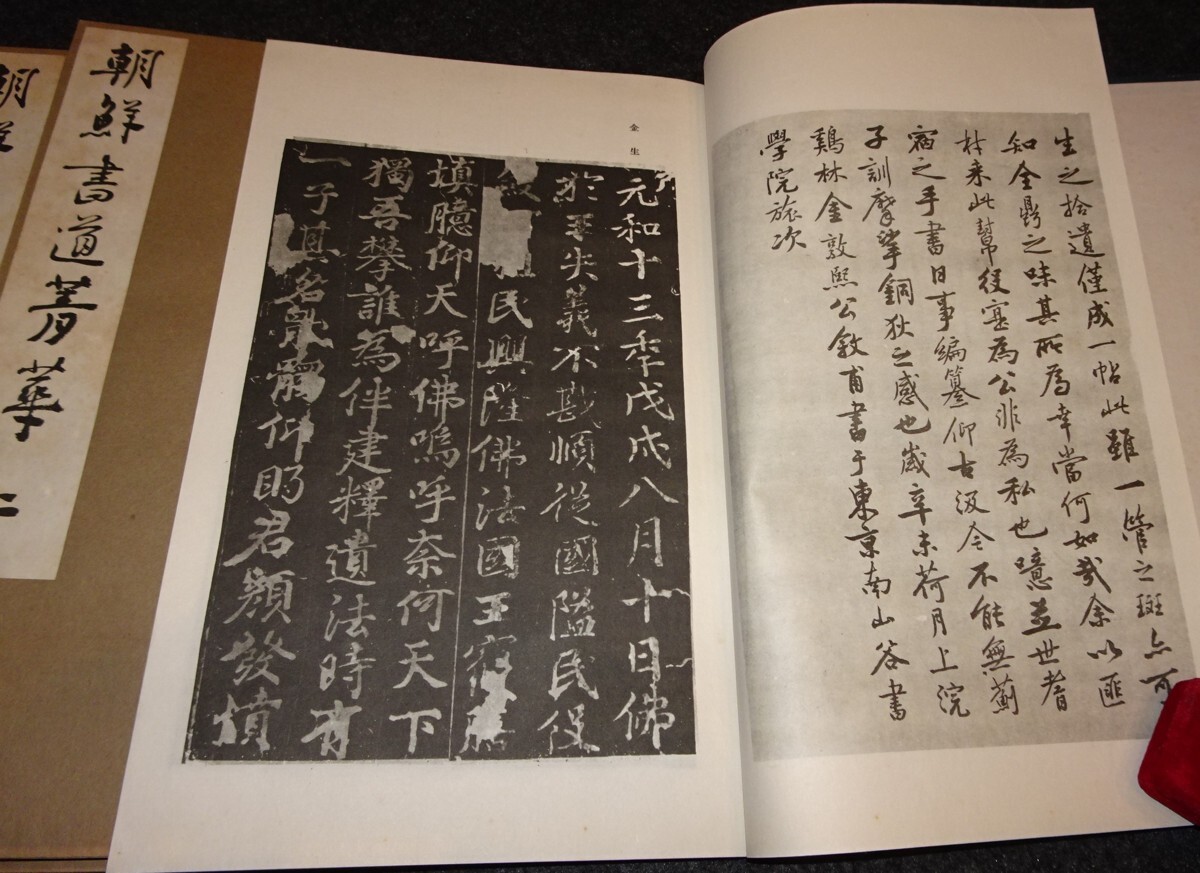 朝鮮書道菁華 二
朝鮮
生之拾遺僅成一帖此雖一管之斑亦可
知全鼎之味其所為幸當何如哉余以匪
材来此幫役寔為公非為私也噫並世者
宿之手書日事編纂仰古汲今不能無薊
子訓摩挲銅狄之感也歲辛未荷月上浣
鷄林金敦熙公敘甫書于東京南山答書
學院旅次
金生
元和十三年戊戌八月十日佛
於 失義不戡順從國隘民役
民興隆佛法國王
填臆仰天呼佛嗚呼奈何天下
獨吾攀誰為伴建釋遺法時有
一子其名猒髑仰眄君顏發憤